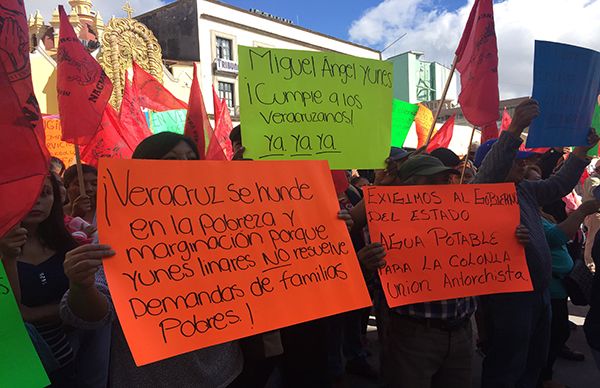 Miguel Angel Yunes
¡Cumple a los
Veracruzanos!
Ya, ya, ya
¡Veracruz se hunde
en la pobreza y
marginación porque
yunes linares NO resuelve
Demandas de familias
Pobres.!
EXIGIMOS AL GOBIERNO
DEL ESTADO
AGUA POTABLE
PARA LA COLONIA
UNION ANTORCHISTA